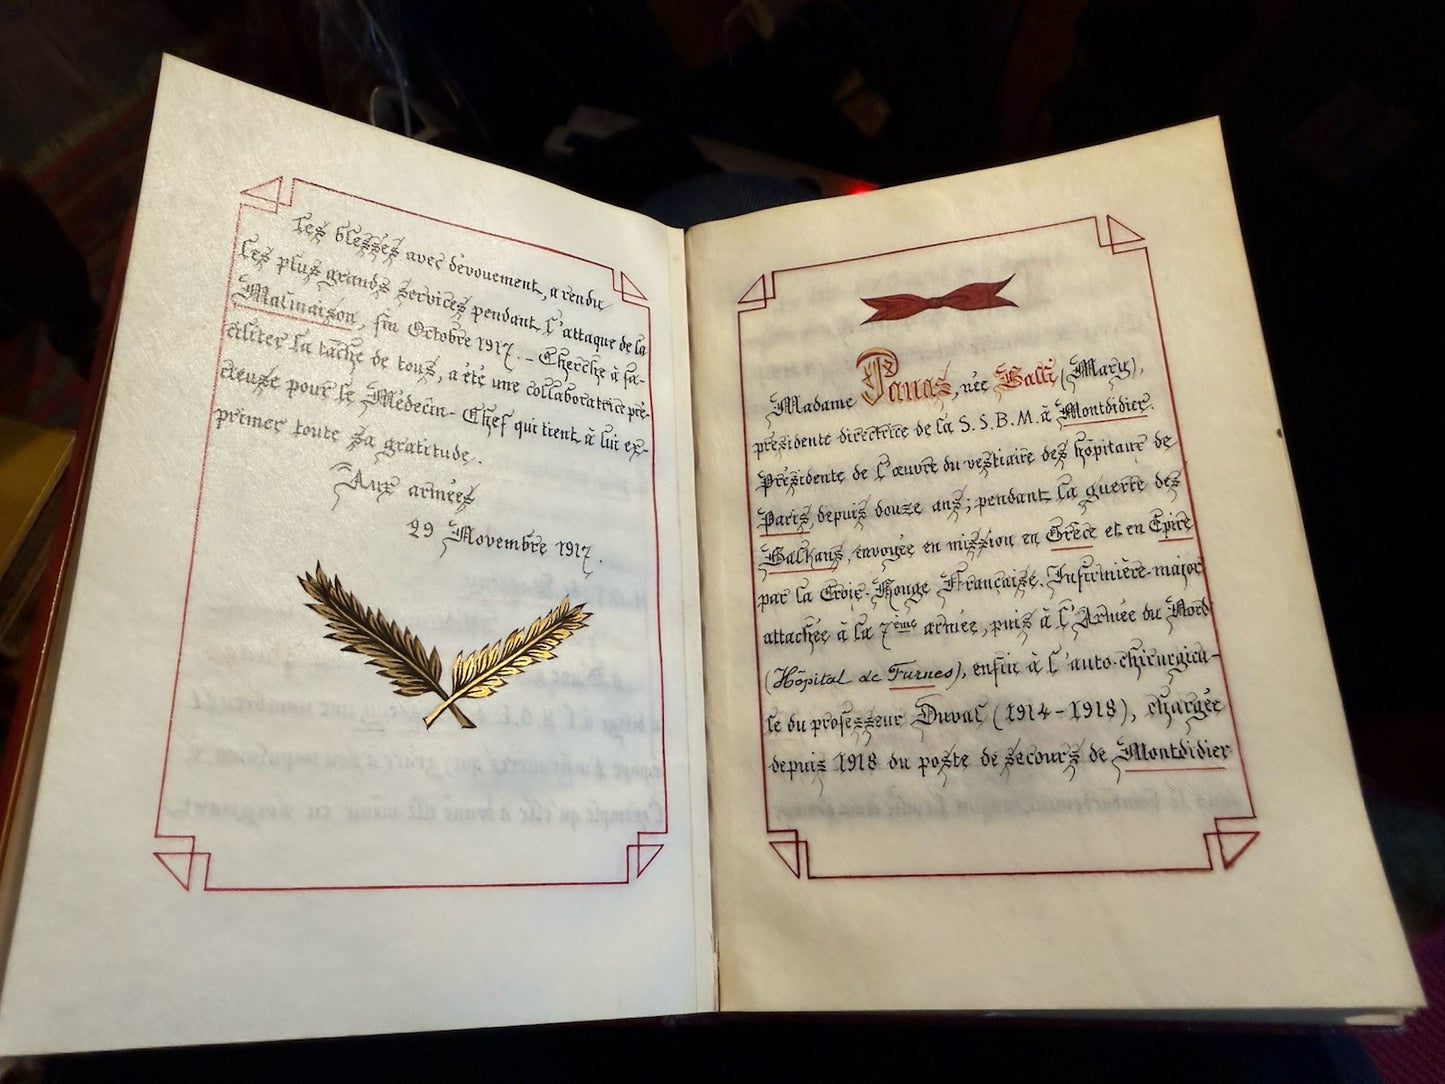 les blessés avec dévouement, a rendu
les plus grands services pendant l'attaque de la
Malmaison, fin Octobre 1917. - Cherche à fa-
ciliter la tâche de tous, a été une collaboratrice pré-
cieuse pour le Médecin-Chef qui tient à lui ex-
primer toute sa gratitude.
Aux armées
29 Novembre 1917.
Madame Panas, née Galli (Mary),
présidente directrice de la S.S.B.M. à Montdidier.
Présidente de l'œuvre du vestiaire des hôpitaux de
Paris, depuis douze ans; pendant la guerre des
Balkans, envoyée en mission en Grèce et en Epire
par la Croix-Rouge Française. Infirmière-major
attachée à la 7ème armée, puis à l'Armée du Nord
(Hôpital de Furnes), enfin à l'auto-chirurgica-
le du professeur Duval (1914-1918), chargée
depuis 1918 du poste de secours de Montdidier